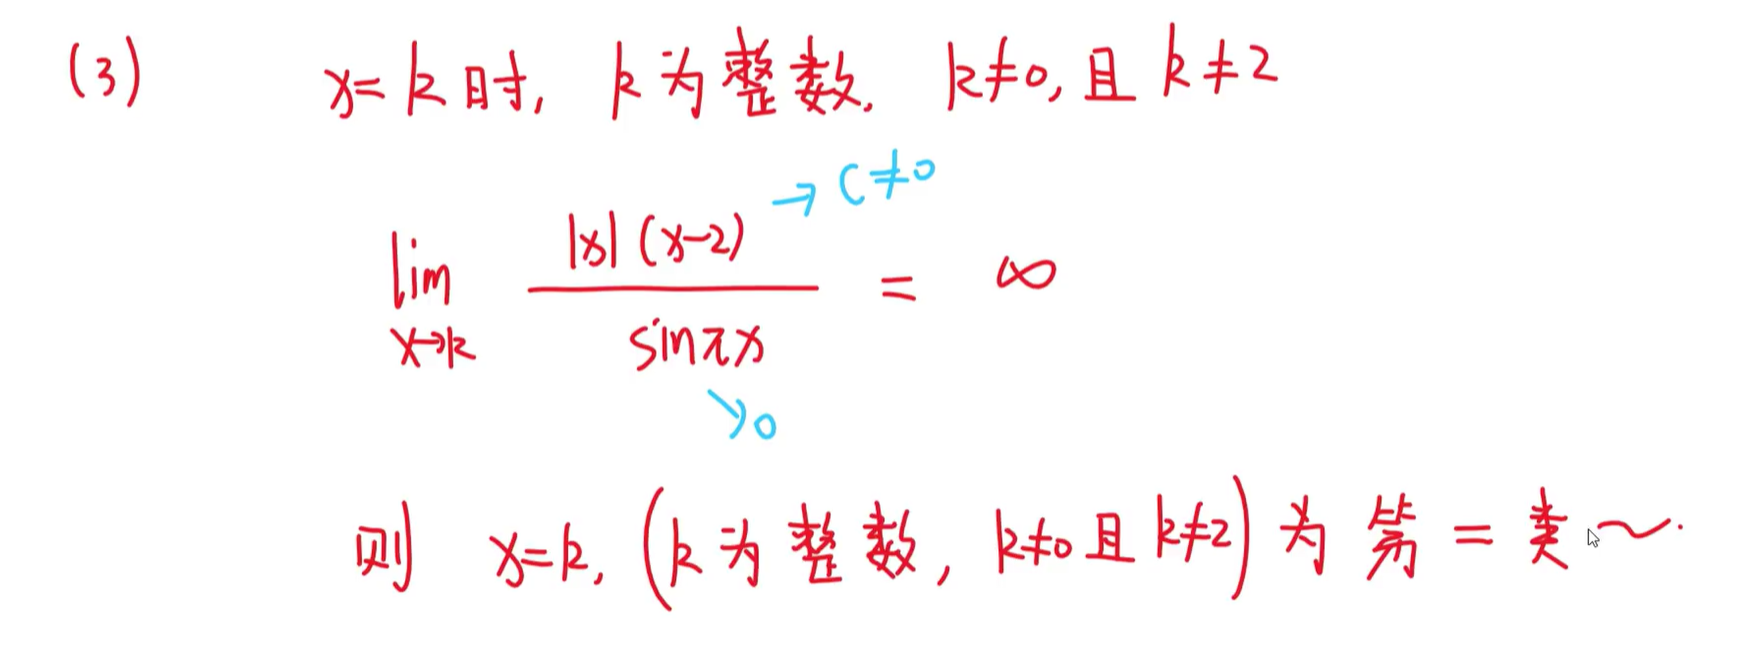 (3) x=k时, k为整数, k≠0,且k≠2
→ C≠0
lim x→k |x|(x-2) / sinπx = ∞
↘0
则 x=k, (k为整数, k≠0且k≠2)为第二类~.